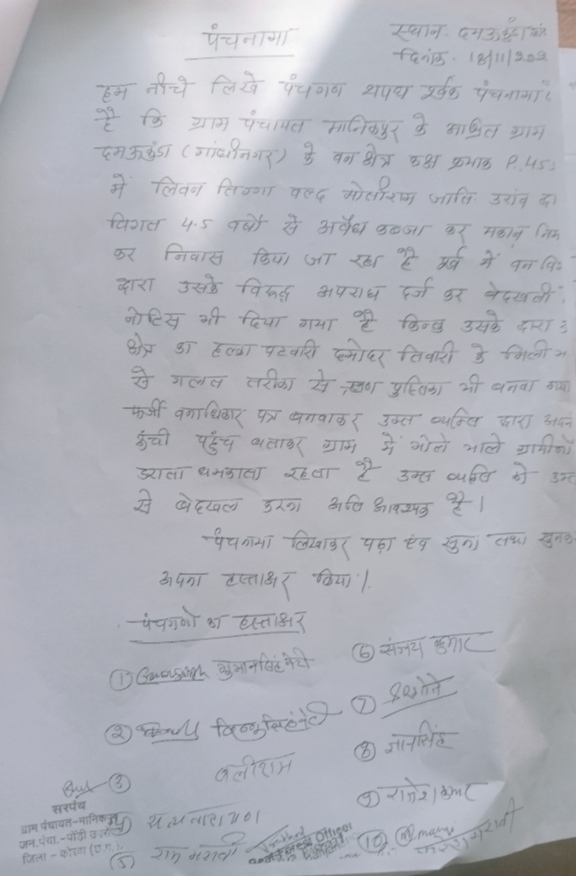 पंचनामा
स्थान- दमऊकुंडा
दिनांक- 18/11/202
हम नीचे लिखे पंचगण शपथ पूर्वक पंचनामा
है कि ग्राम पंचायत मानिकपुर के आश्रित ग्राम
दमऊकुंडा (गांधीनगर) के वन क्षेत्र कक्ष क्रमांक P.45
में लिवन तिग्गा वल्द मोतीराम जाति उरांव
विगत 4-5 वर्षों से अवैध कब्जा कर मकान
कर निवास किया जा रहा है पूर्व में वन
द्वारा उसके विरूद्ध अपराध दर्ज कर बेदखली
नोटिस भी दिया गया है किन्तु उसके द्वारा
क्षेत्र का हल्का पटवारी दमोदर तिवारी के
से गलत तरीका से ऋण पुस्तिका भी बनवा
फर्जी वनाधिकार पत्र बनवाकर उक्त व्यक्ति द्वारा
ऊंची पहुंच बताकर ग्राम में भोले भाले ग्रामीणों
डराता धमकाता रहता है उक्त व्यक्ति को
से बेदखल करना अति आवश्यक है।
पंचनामा लिखाकर पढ़ा एवं सुना तथा
अपना हस्ताक्षर किया।
पंचगणो का हस्ताक्षर
①
⑥ संजय कुमार
②
⑦
③ बलीराम
⑧ ज्ञानसिंह
④ सत्यनारायण
⑨ राजेश कुमार
⑤ राम
⑩
सरपंच
ग्राम पंचायत-मानिकपुर
जन.पंचा.-पोंड़ी
जिला - कोरबा (छ.ग.)